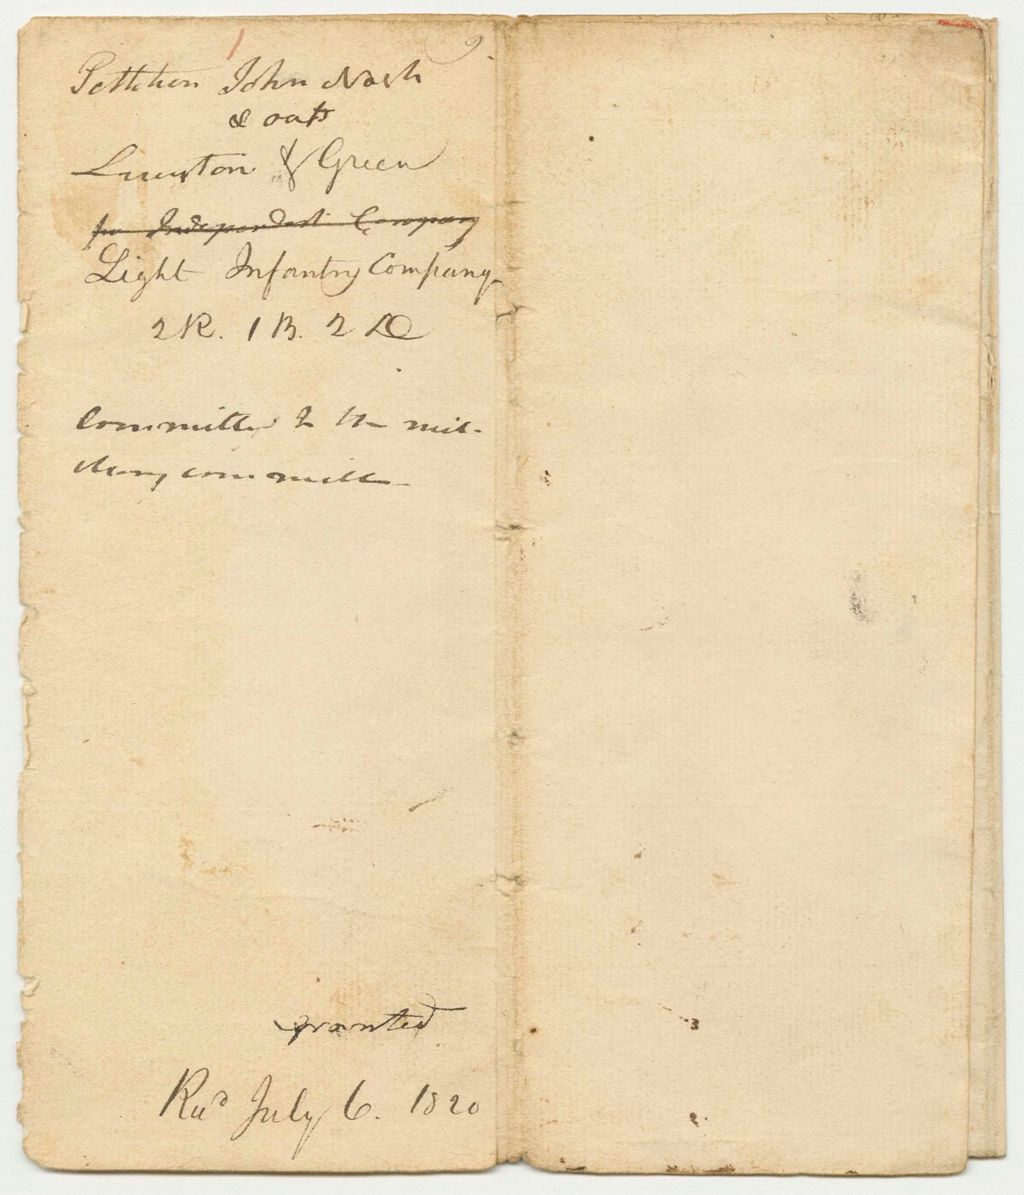 9.
Petition John Nash
& oaths
Lewiston & Green
for Independent Company
Light Infantry Company
2 R. 1 B. 2 D
Committed to the mil-
itary committee
granted
Recd July 6. 1820